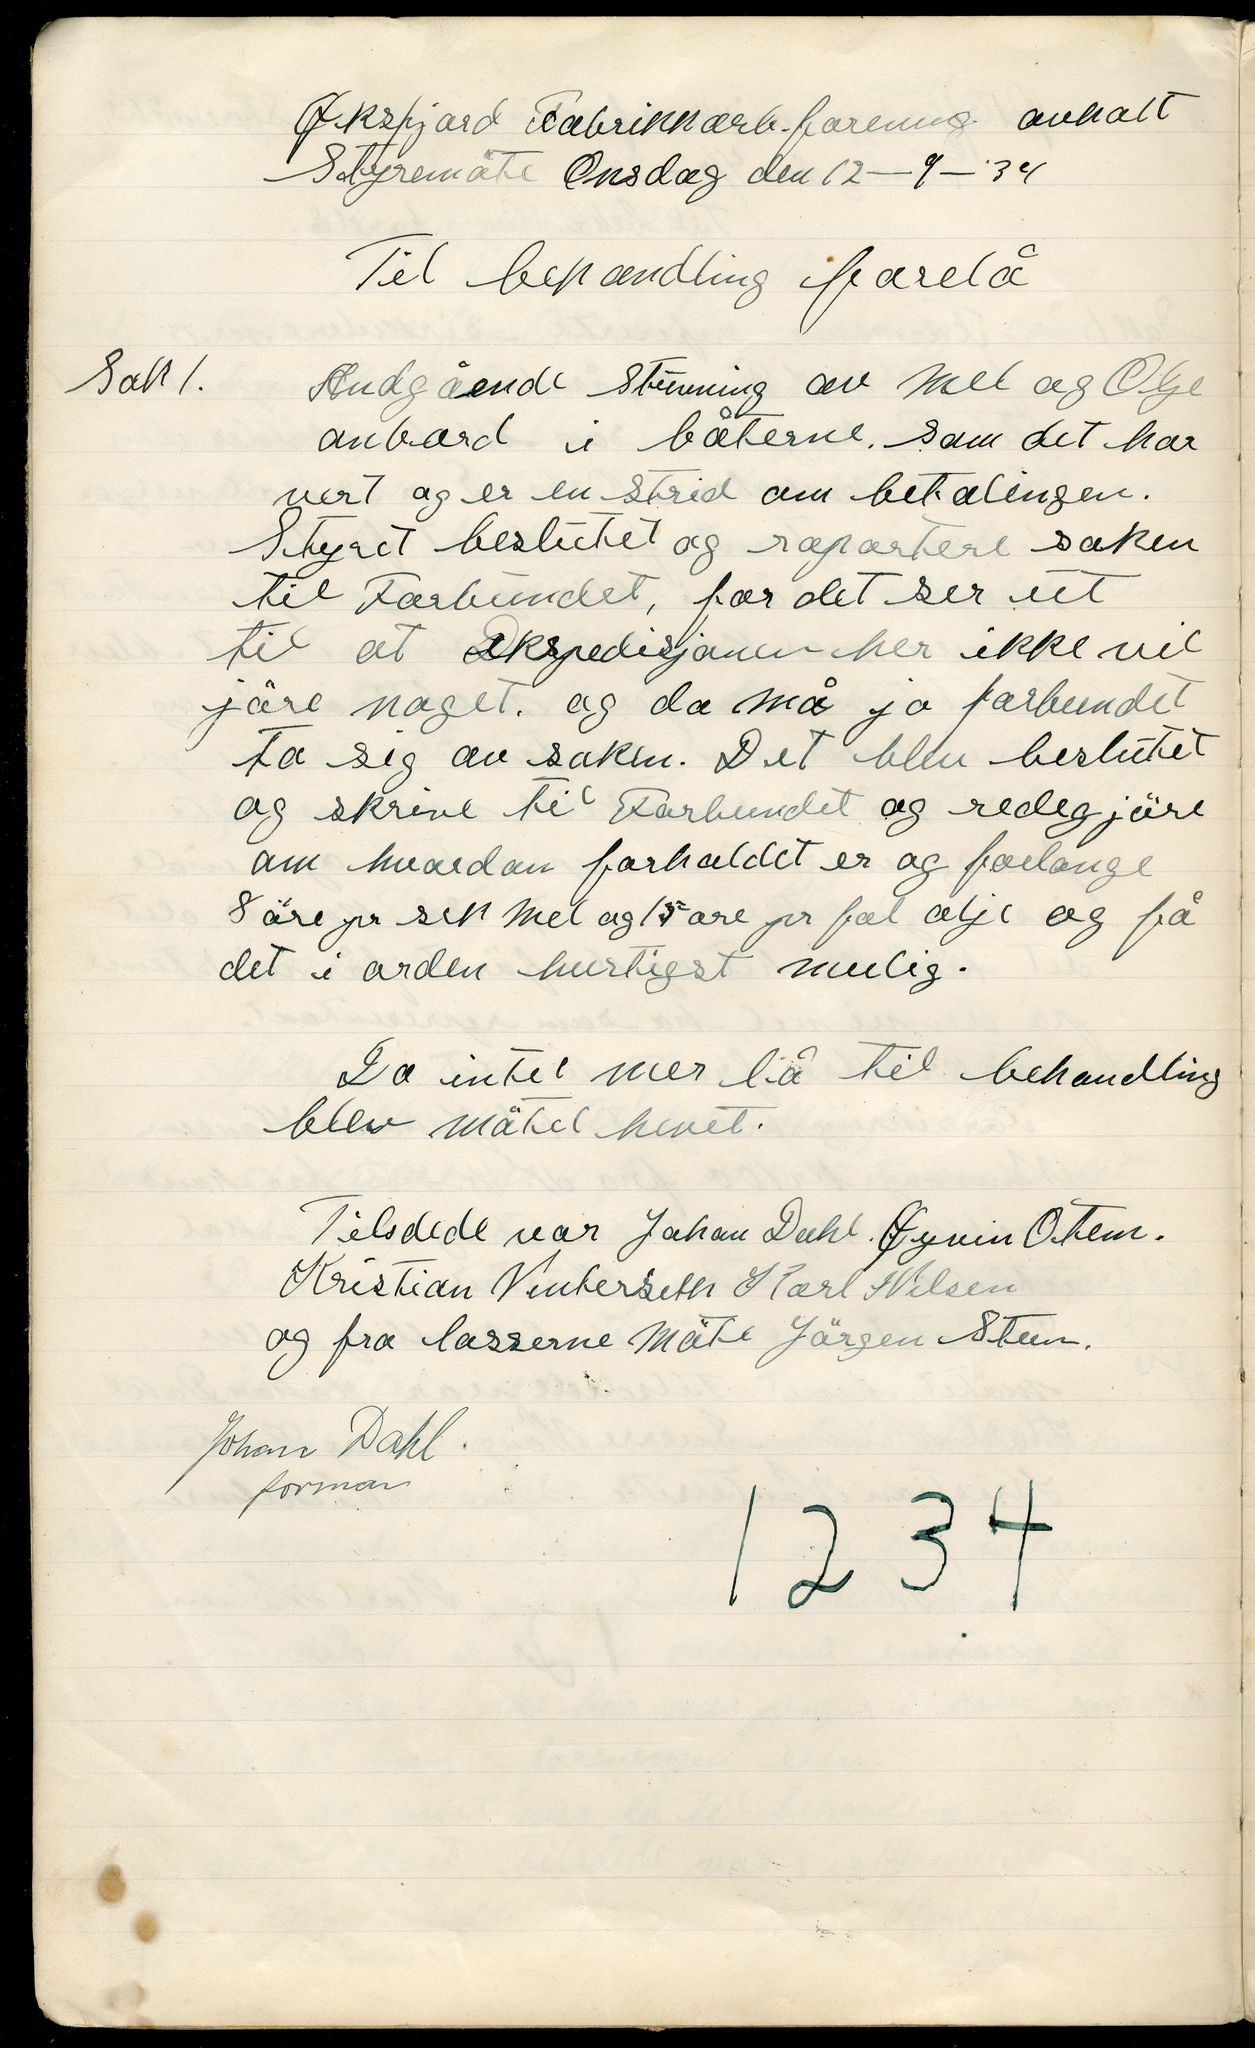 Øksfjord Fabrikkarb. forening avholt
Styremöte Onsdag den 12-9-34
Til behandling forelå
Sak 1. Andgåend stuvning av Mel og Olje
onbord i båterne. som det har
vert og er en strid om betalingen.
Styret beslutet og raportere saken
til Forbundet, for det ser ut
til at Ekspedisjonen her ikke vil
jöre noget. og da må jo forbundet
ta sig av saken. Det blev beslutet
og skrive til Forbundet og redegjöre
om hvordan forholdet er og forlange
8 öre pr sek Mel og 15 öre pr fat olje og få
det i orden hurtigst mulig.
Da intet mer lå til behandling
blev mötet hevet.
Tilsdede var Johan Dahl. Øyvin Otem.
Kristian Vinterseth Karl Nilsen
og fra losserne mötte Jörgen Steen.
Johan Dahl.
forman
1234